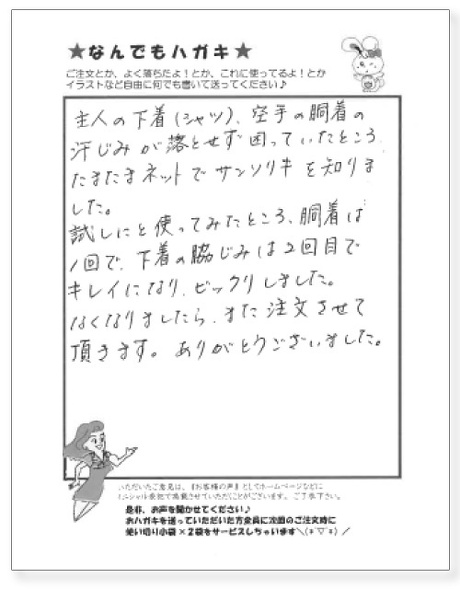 ★なんでもハガキ★
ご注文とか、よく落ちたよ！とか、これに使ってるよ！とか
イラストなど自由に何でも書いて送ってください♪
主人の下着(シャツ)、空手の胴着の
汗じみが落とせず困っていたところ、
たまたまネットでサンソリキを知りま
した。
試しにと使ってみたところ、胴着は
1回で、下着の脇じみは2回目で
キレイになり、ビックリしました。
なくなりましたら、また注文させて
頂きます。ありがとうございました。
いただいたご意見は、『お客様の声』としてホームページなどに
イニシャル表記で掲載させていただくことがございます。ご了承下さい。
是非、お声を聞かせてください♪
おハガキを送っていただいた方全員に次回のご注文時に
使い切り小袋×2袋をサービスしちゃいます＼(*'▽'*)／